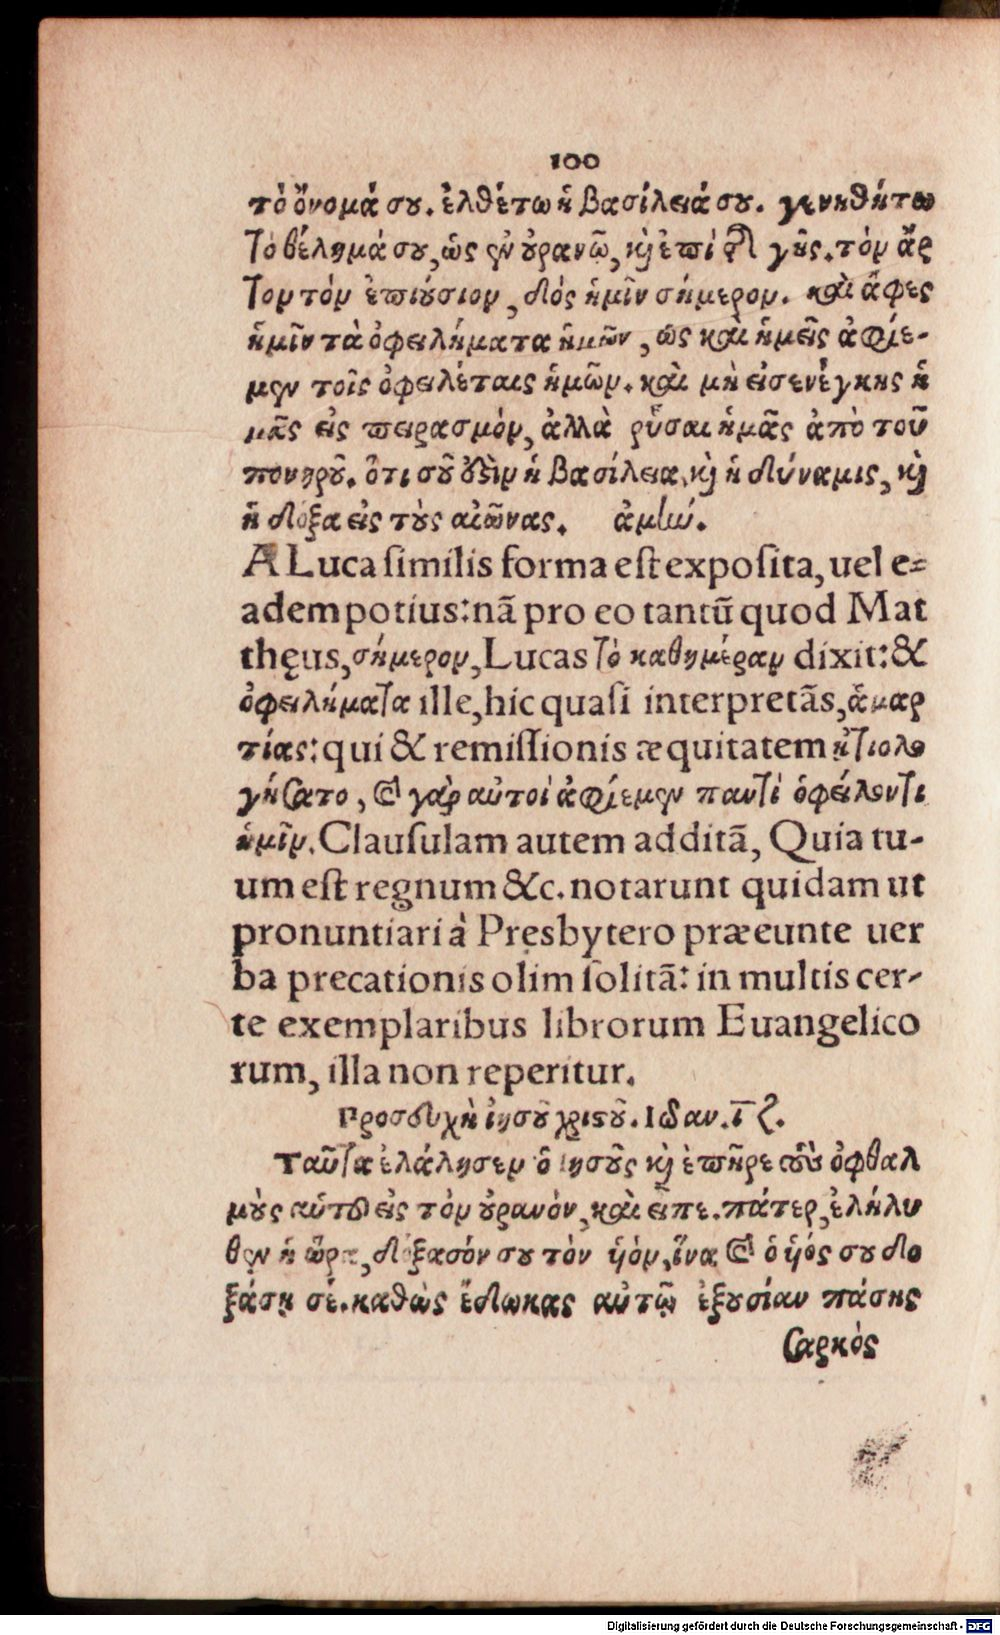 100
τὸ ὄνομά σου. ἐλθέτω ἡ βασίλειά σου. γενηθήτω
τὸ θέλημά σου, ὡς ἐν οὐρανῷ, καὶ ἐπὶ τῆς γῆς. τὸν ἄρ
τον τὸν ἐπιούσιον, δὸς ἡμῖν σήμερον. καὶ ἄφες
ἡμῖν τὰ ὀφειλήματα ἡμῶν, ὡς καὶ ἡμεῖς ἀφίε-
μεν τοῖς ὀφειλέταις ἡμῶν. καὶ μὴ εἰσενέγκης ἡ
μᾶς εἰς πειρασμὸν, ἀλλὰ ῥῦσαι ἡμᾶς ἀπὸ τοῦ
πονηροῦ. ὅτι σοῦ ἐστὶν ἡ βασίλεια, καὶ ἡ δύναμις, καὶ
ἡ δόξα εἰς τοὺς αἰῶνας. ἀμήν.
A Luca similis forma est exposita, uel e=
adem potius: nã pro eo tantũ quod Mat
thęus, σήμερον, Lucas τὸ καθημέραν dixit: &
ὀφειλήματα ille, hic quasi interpretãs, ἁμαρ
τίας: qui & remissionis æquitatem ἠτιολο
γήσατο, καὶ γὰρ αὐτοὶ ἀφίεμεν παντὶ ὀφείλοντι
ἡμῖν. Clausulam autem additã, Quia tu-
um est regnum &c. notarunt quidam ut
pronuntiari à Pręsbytero præeunte uer
ba precationis olim solitã: in multis cer-
te exemplaribus librorum Euangelico
rum, illa non reperitur.
Προσευχὴ ἰησοῦ χριστοῦ. Ιωαν. ΙΖ.
Ταῦτα ἐλάλησεν ὁ ιησοῦς καὶ ἐπῆρε τοὺς ὀφθαλ
μοὺς αὑτοῦ εἰς τὸν οὐρανὸν, καὶ εἶπε. πάτερ, ἐλήλυ
θεν ἡ ὥρα, δόξασόν σου τὸν ὑιόν, ἵνα καὶ ὁ ὑιός σου δο
ξάσῃ σέ. καθὼς ἔδωκας αὐτῷ ἐξουσίαν πάσης
σαρκὸς
Digitalisierung gefördert durch die Deutsche Forschungsgemeinschaft - DFG